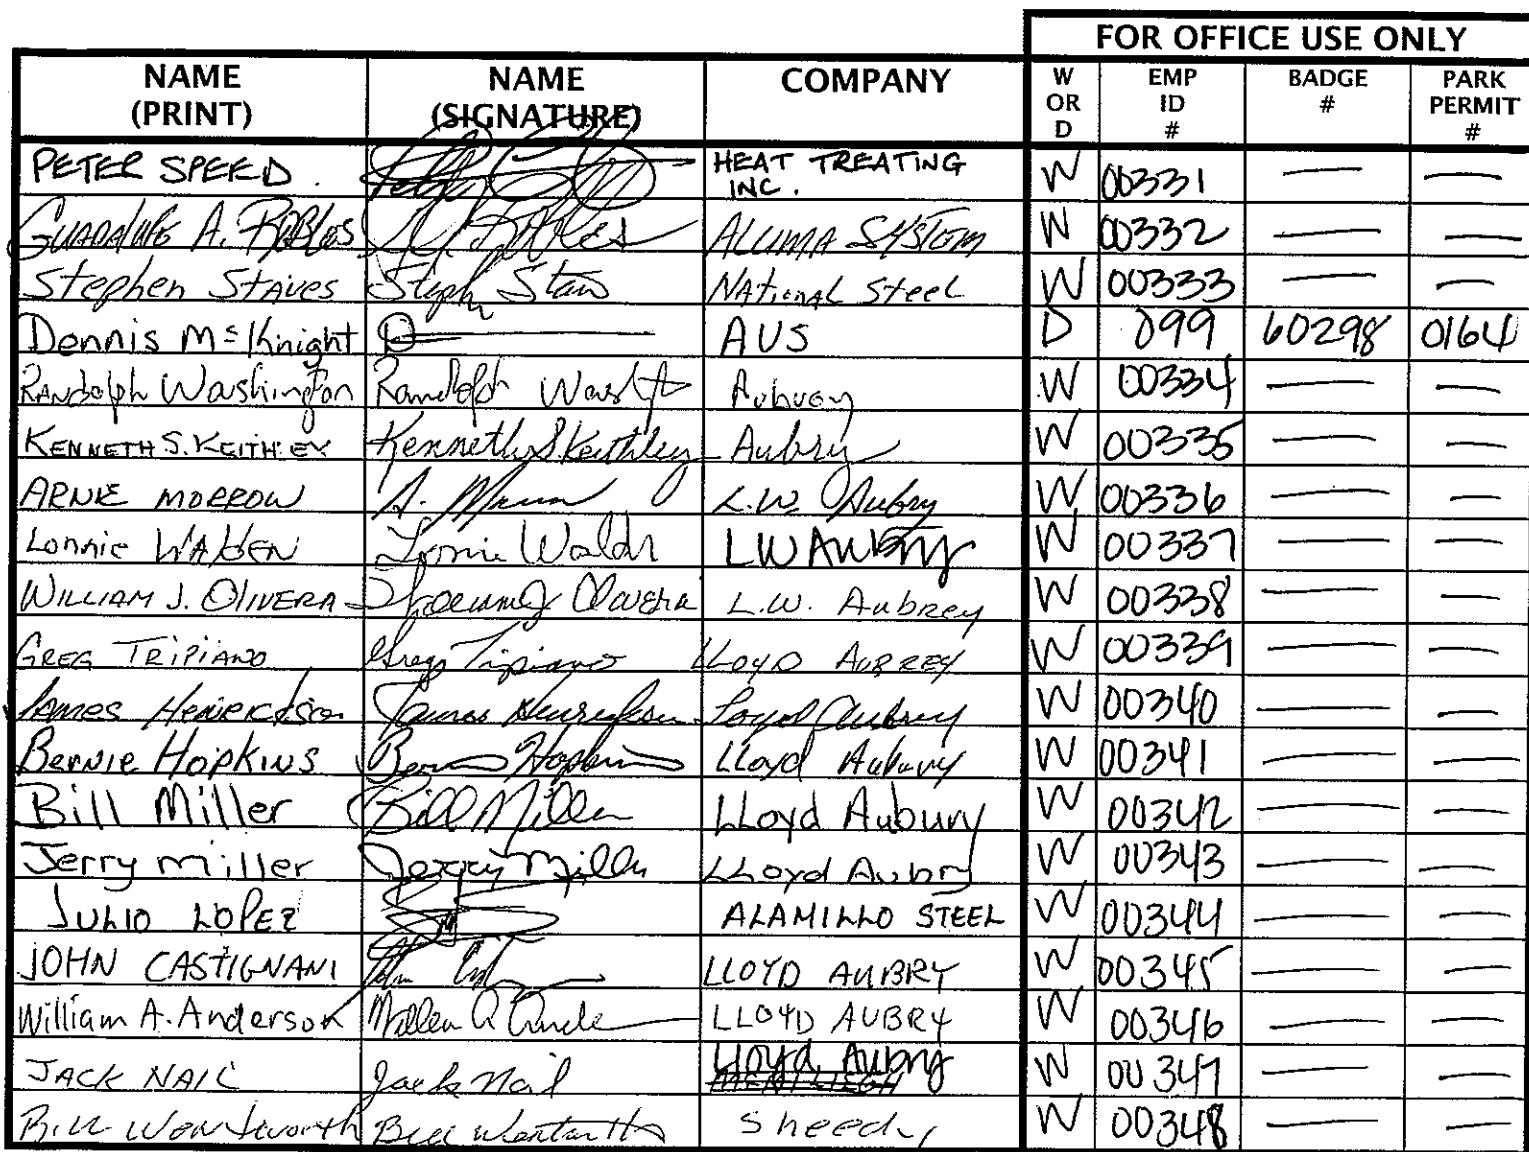 FOR OFFICE USE ONLY
NAME (PRINT) NAME (SIGNATURE) COMPANY W OR D EMP ID # BADGE # PARK PERMIT #
PETER SPEED. HEAT TREATING INC. W 00331 — —
GUADALUPE A. ROBLES ALUMA SYSTEM W 00332 — —
Stephen STAVES Steph Stavs NATIONAL Steel W 00333 — —
Dennis McKnight AUS D 099 60298 0164
RANDOLPH Washington Randolph W 00334 — —
KENNETH S. KEITHLEY Kenneth S Keithley Aubry W 00335 — —
ARNIE MORROW A. L.W. Aubry W 00336 — —
Lonnie WALDEN Lonnie LW Aubry W 00337 — —
WILLIAM J. OLIVERA L.W. Aubrey W 00338 — —
GREG TRIPIANO Greg Tripiano LLOYD AUBREY W 00339 — —
James James Loyd Aubrey W 00340 — —
Bernie Hopkins Hopkins Lloyd W 00341 — —
Bill Miller Bill Miller LLoyd Aubury W 00342 — —
Jerry miller Jerry Miller LLoyd Aubry W 00343 — —
JULIO LOPEZ ALAMILLO STEEL W 00344 — —
JOHN CASTIGNANI LLOYD AUBRY W 00345 — —
William A. Anderson LLOYD AUBRY W 00346 — —
JACK NAIL Jack Nail Lloyd Aubry W 00347 — —
Bill Wentworth Bill Sheedy W 00348 — —